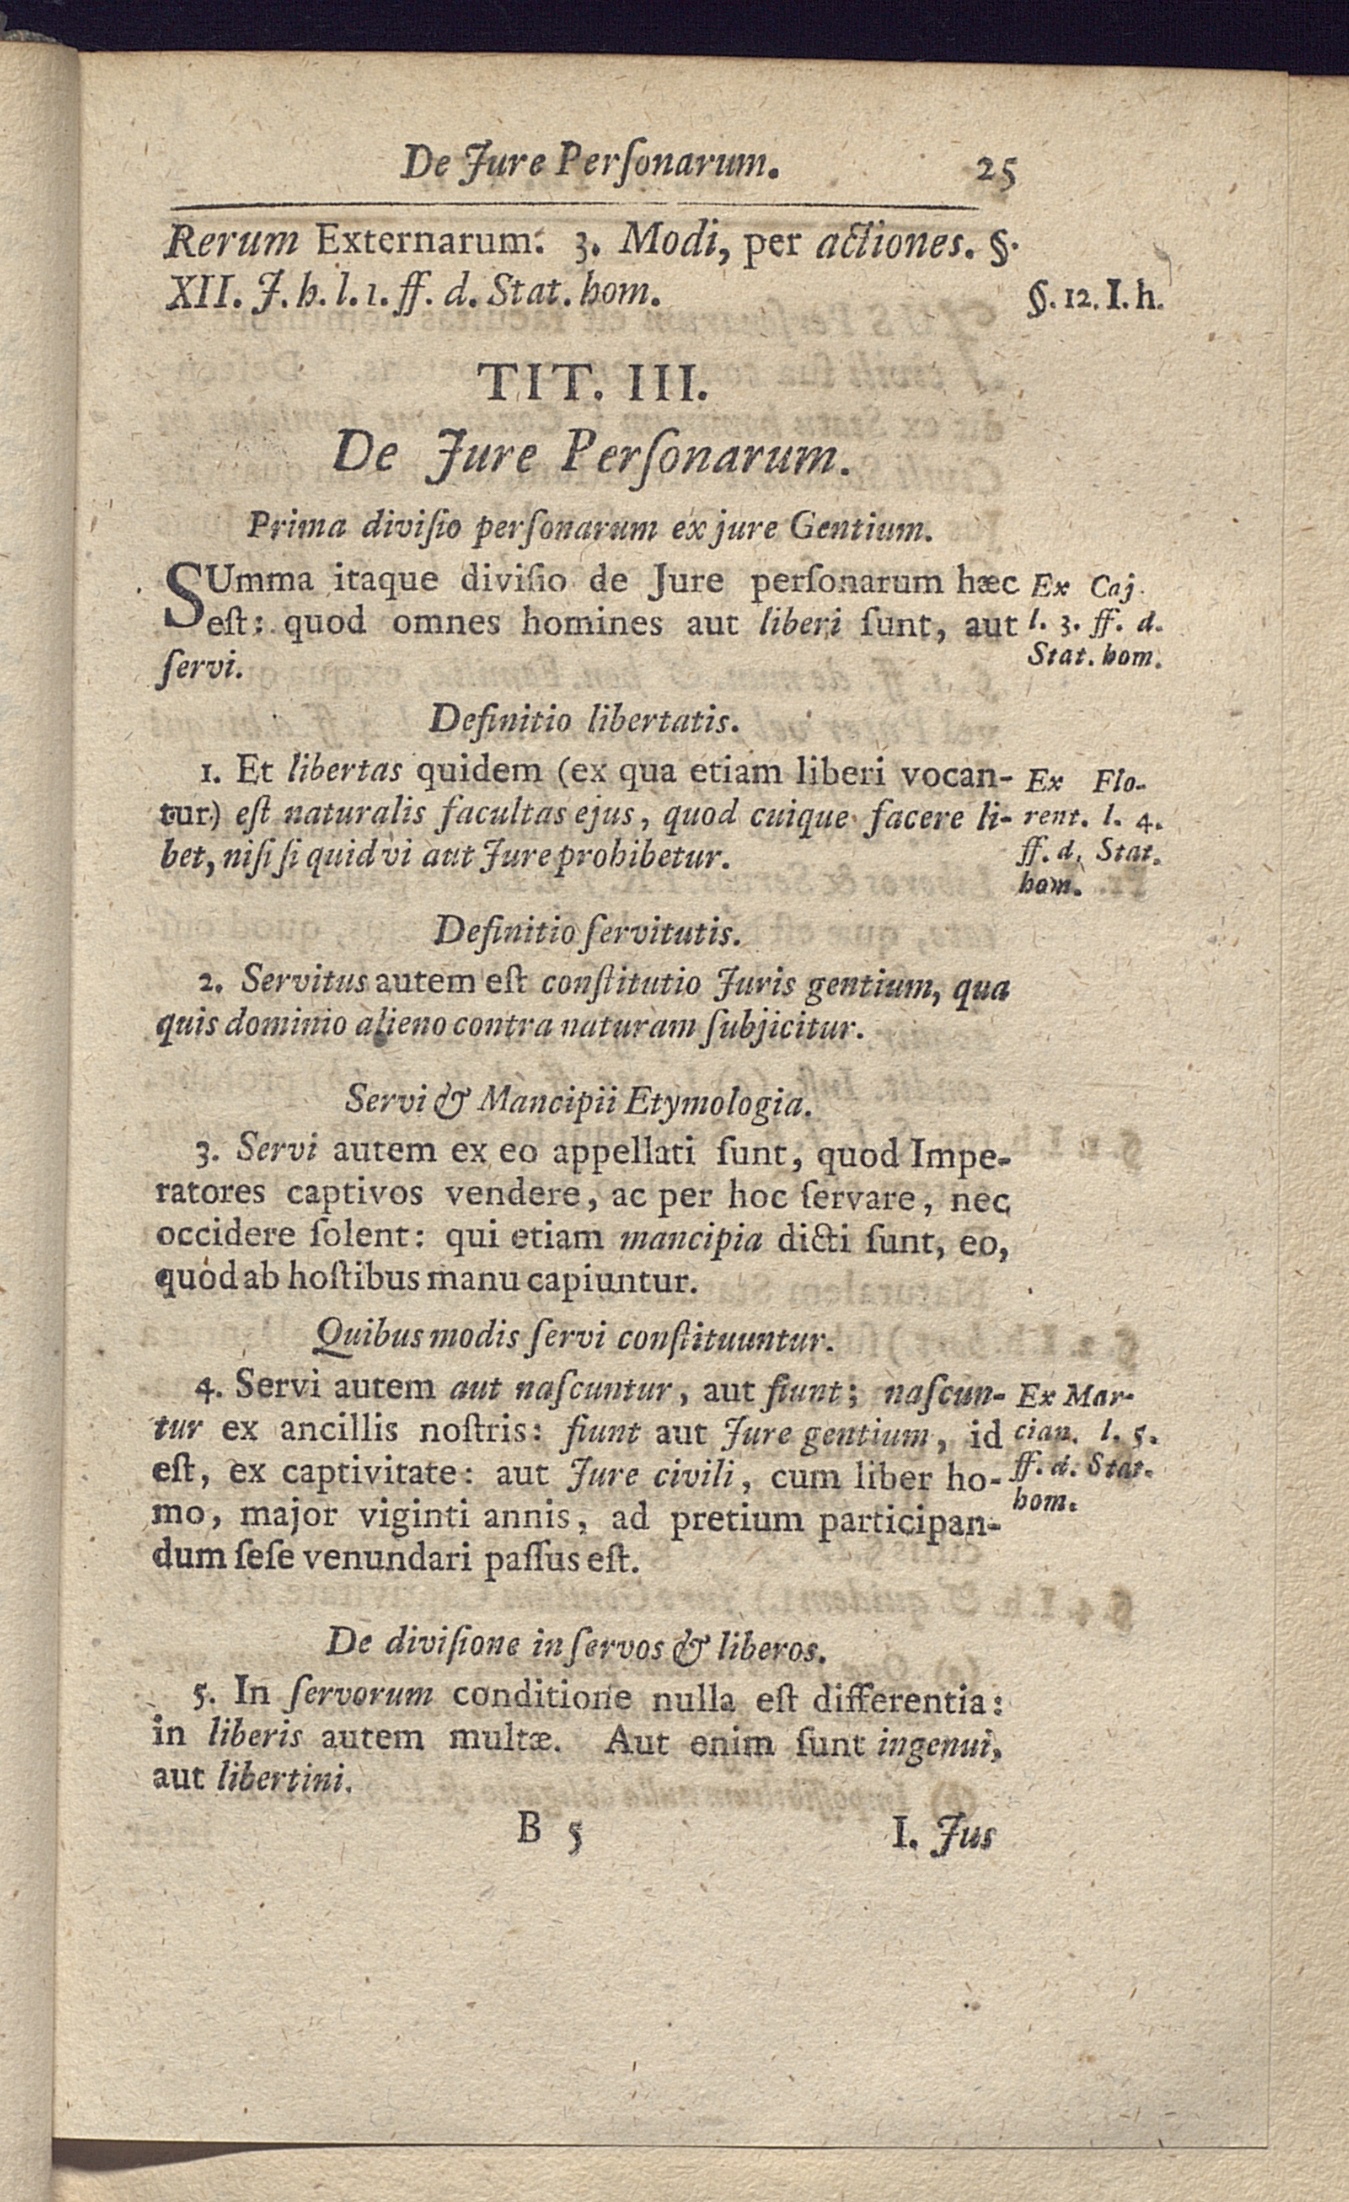 De Jure Perſonarum. 25
Rerum Externarum. 3. Modi, per actiones. §.
XII. J. h. l. 1. ff. d. Stat. hom.
§. 12. I. h.
TIT. III.
De Jure Perſonarum.
Prima diviſio perſonarum ex jure Gentium.
SUmma itaque diviſio de Jure perſonarum hæc
eſt: quod omnes homines aut liberi ſunt, aut
ſervi.
Ex Caj.
l. 3. ff. d.
Stat. hom.
Definitio libertatis.
1. Et libertas quidem (ex qua etiam liberi vocan-
tur) eſt naturalis facultas ejus, quod cuique facere li-
bet, niſi ſi quid vi aut Jure prohibetur.
Ex Flo-
rent. l. 4.
ff. d. Stat.
hom.
Definitio ſervitutis.
2. Servitus autem eſt conſtitutio Juris gentium, qua
quis dominio alieno contra naturam ſubjicitur.
Servi & Mancipii Etymologia.
3. Servi autem ex eo appellati ſunt, quod Impe-
ratores captivos vendere, ac per hoc ſervare, nec
occidere ſolent: qui etiam mancipia dicti ſunt, eo,
quòd ab hoſtibus manu capiuntur.
Quibus modis ſervi conſtituuntur.
4. Servi autem aut naſcuntur, aut fiunt; naſcun-
tur ex ancillis noſtris: fiunt aut Jure gentium, id
eſt, ex captivitate: aut Jure civili, cum liber ho-
mo, major viginti annis, ad pretium participan-
dum ſeſe venundari paſſus eſt.
Ex Mar-
cian. l. 5.
ff. d. Stat.
hom.
De diviſione in ſervos & liberos.
5. In ſervorum conditione nulla eſt differentia:
in liberis autem multæ. Aut enim ſunt ingenui,
aut libertini.
B 5 I. Jus